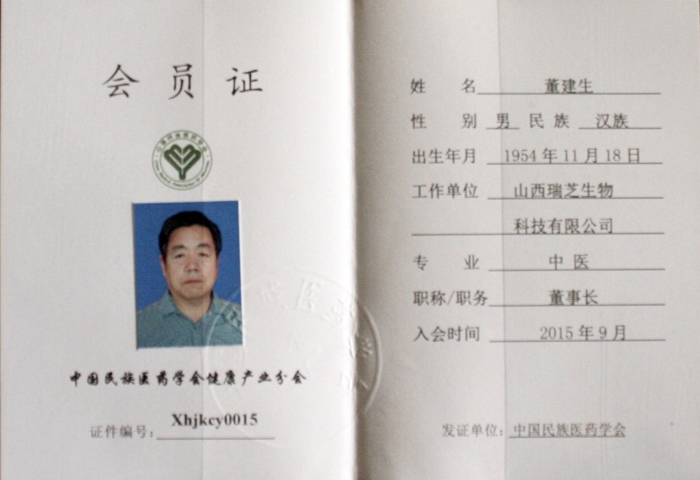 会员证
中国民族医药学会健康产业分会
证件编号: Xhjkcy0015
姓 名 董建生
性 别 男 民 族 汉族
出生年月 1954 年 11 月 18 日
工作单位 山西瑞芝生物
科技有限公司
专 业 中 医
职称/职务 董事长
入会时间 2015 年 9 月
发证单位: 中国民族医药学会